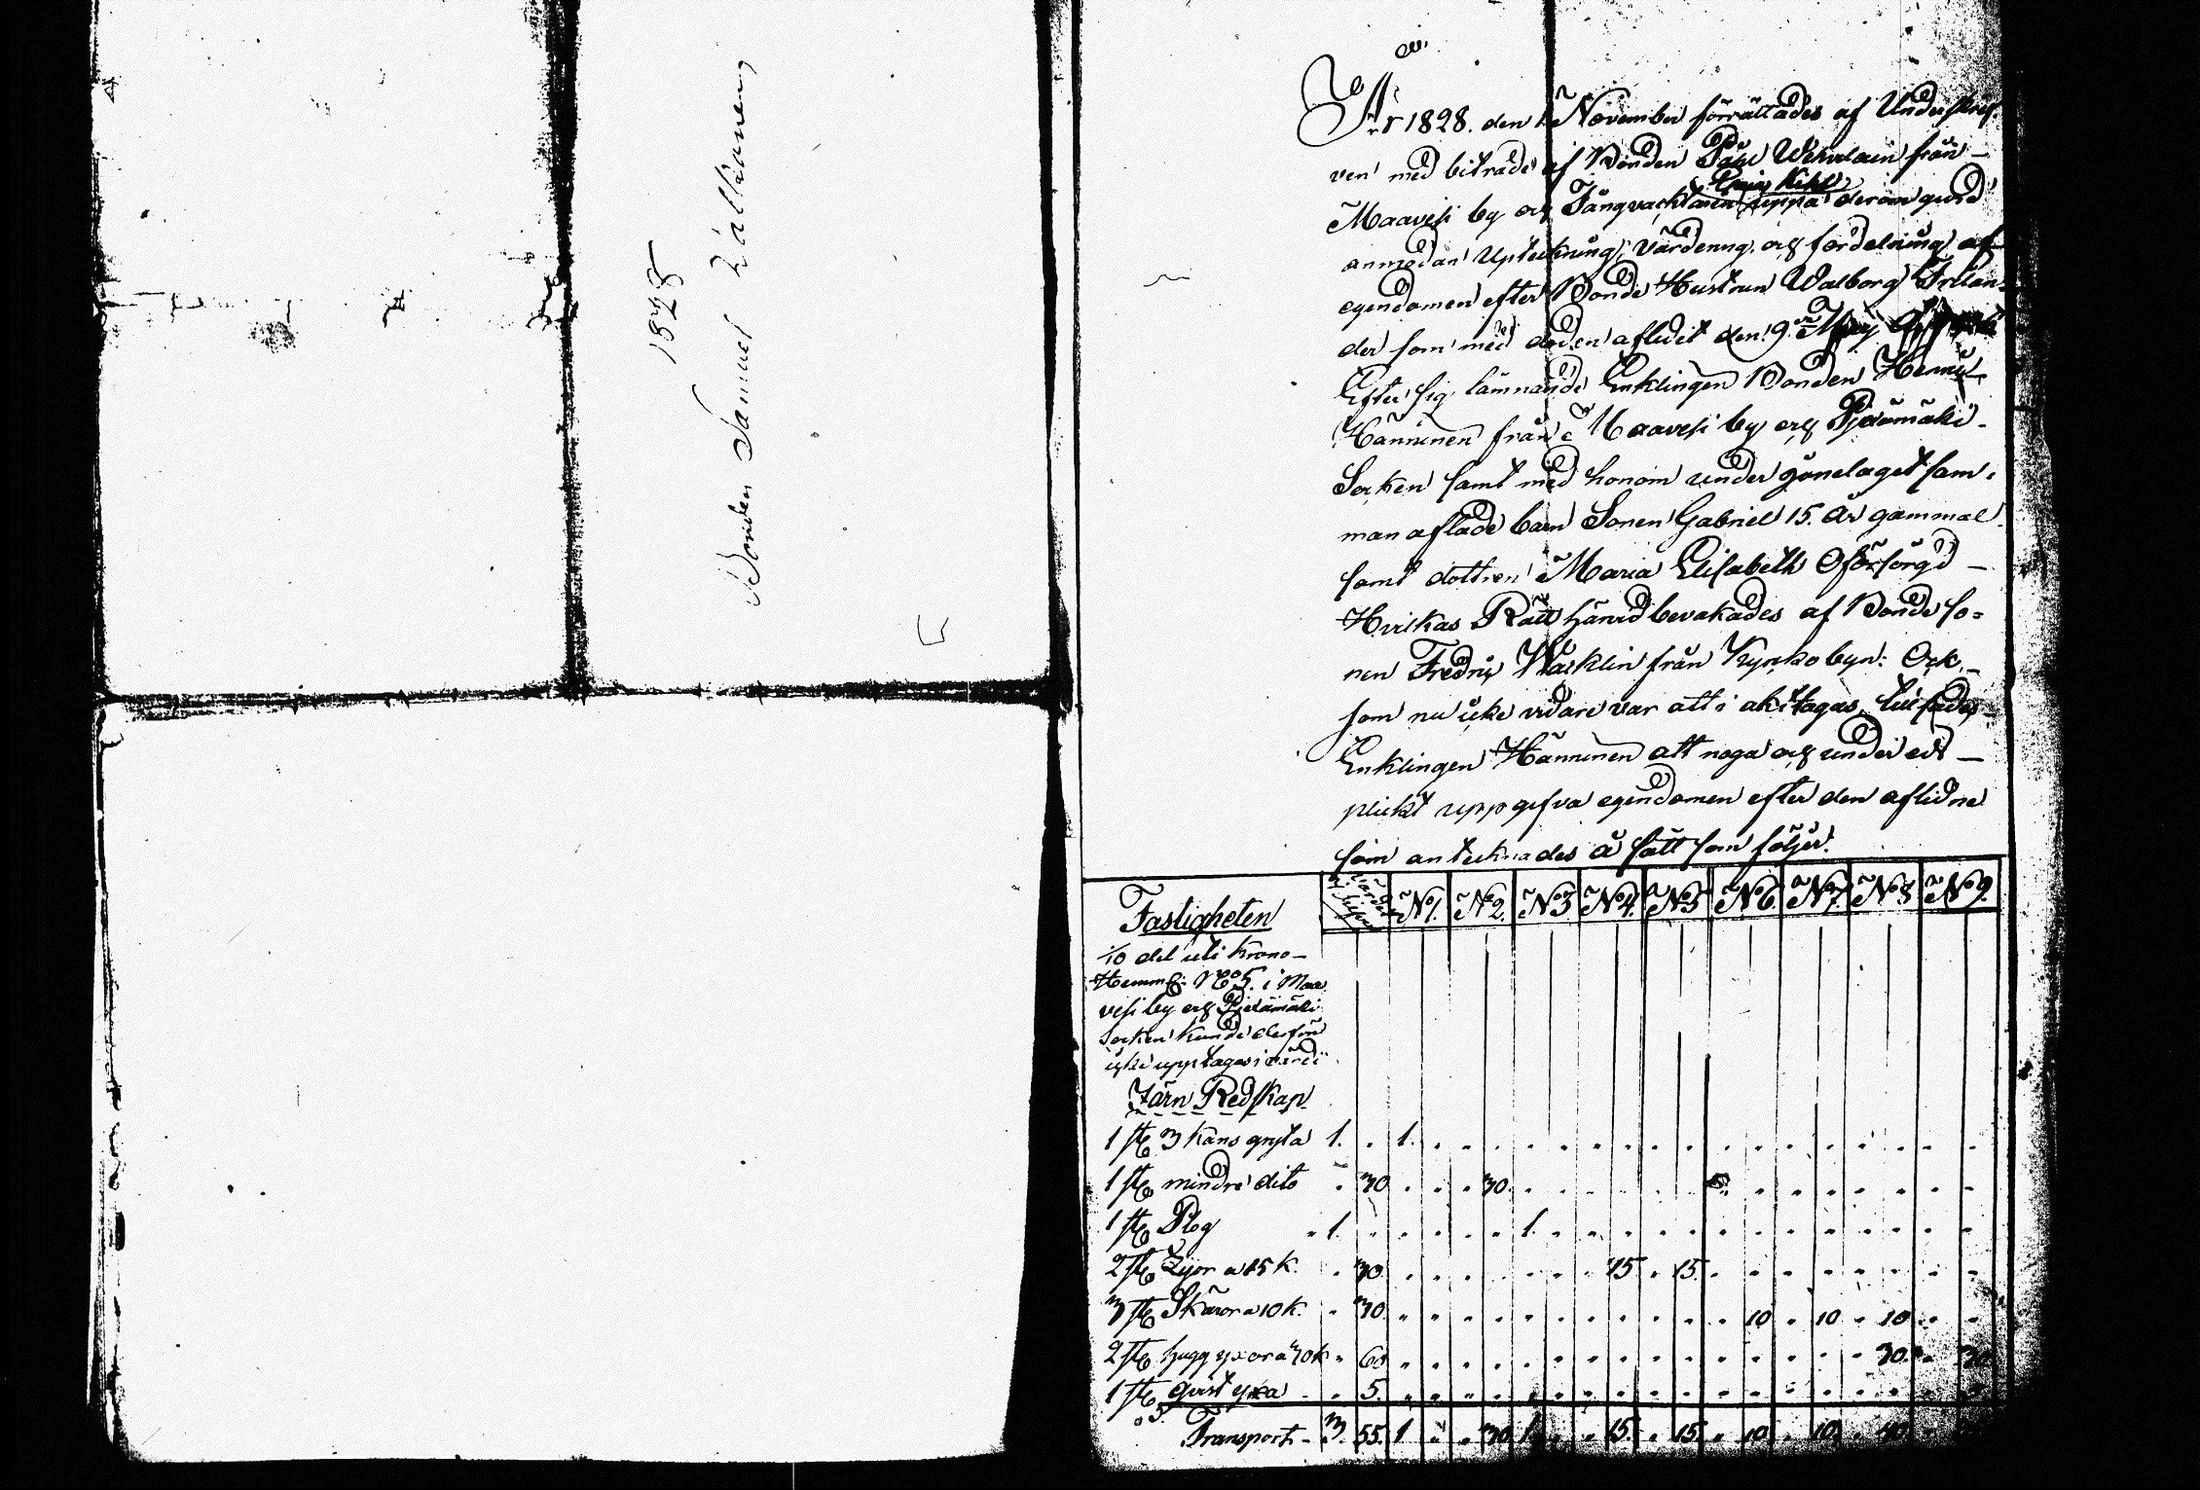 1828
Bonden Samuel
År 1828. den 1. November förrättades af Underskrif-
ven med biträde af Bonden Påhl från
Maavesi by och Fångvacktaren derom giord
anmodan Uptekning, Värdering och fördelning af
egendomen efter Bonde Hustrun Walborg Frilän-
der som med döden afledit den 9de
Efter sig lämnande Enklingen Bonden Henric
Hänninen från Maavesi by och Pjexämäki
Socken samt med honom under gönelaget sam-
man aflade barn Sonen Gabriel 15. År gammal
samt dottren Maria Elisabeth Oförsörgd
Hvilkas Rätt härvid bevakades af Bonde so-
nen Fredric från byn: Ock
som nu icke vidare var att i aktagas,
Enklingen Hänninen att noga och under ed
plickt uppgifva egendomen efter den aflidne
som antecknades å sätt som följer.
Fastigheten Värdet i Silfver No 1. No 2. No 3 No 4. No 5 No 6. No 7. No 8 No 9.
1/10 del uti Krono
Hemm: No 5. i Maa
vesi by och Pjexämäki
Socken kunde derföre
icke upptagas i värde
Järn Redskap
1 st 3 kans gryta 1. . 1.
1 st mindre dito . 30 30.
1 st Plog 1. 1.
2 st Lijor a 15 K. . 30 15 15.
3 st Skäror a 10 K. . 30. 10 10 10
2 st hugg yxor a 30 K 60 30. 30
1 st qvist yxa 5.
Transport 3. 55. 1 30 1. 15. 15. 10. 10. 40